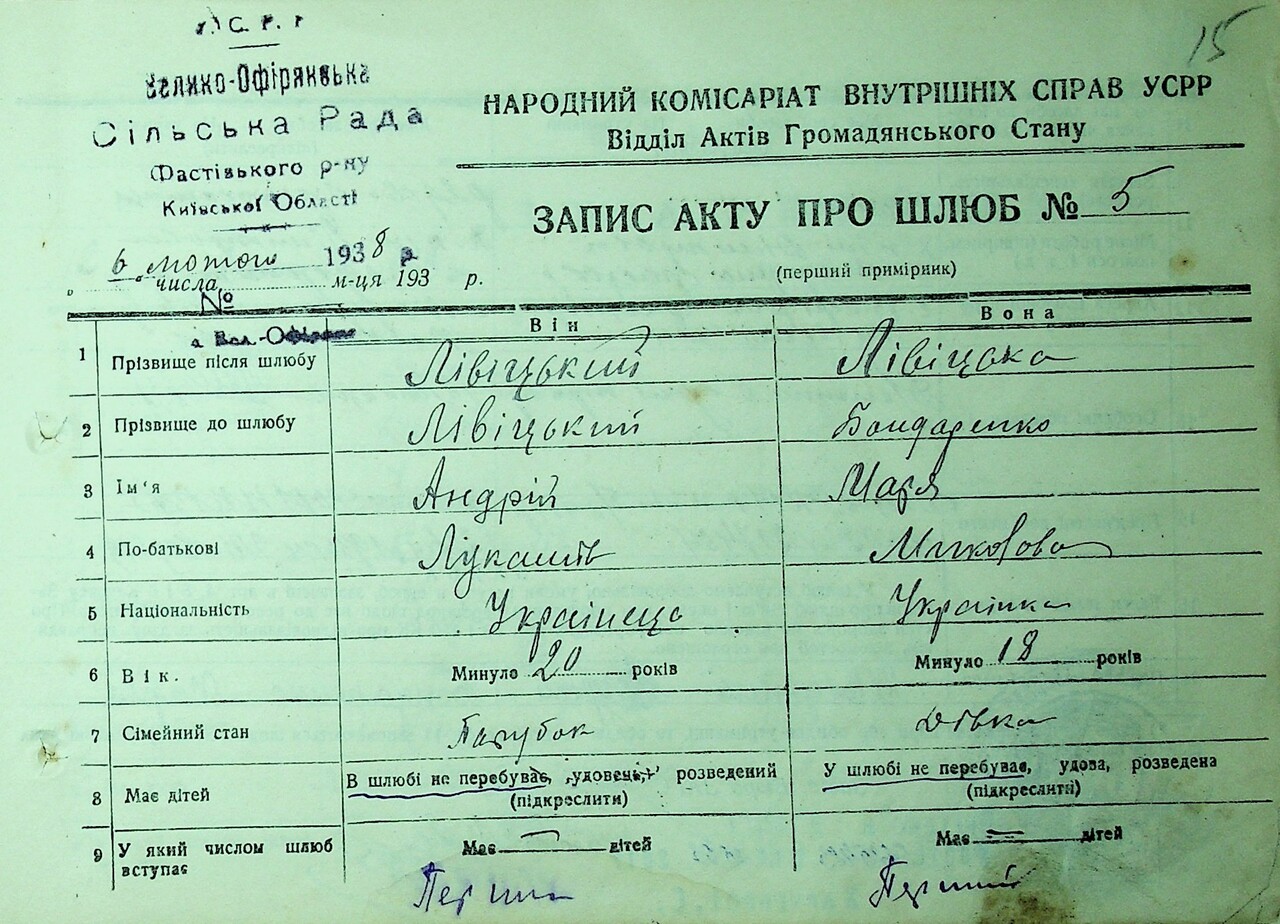 15
У.С.Р.Р
Велико-Офірянська
Сільська Рада
Фастівського р-ну
Київської Області
НАРОДНИЙ КОМІСАРІАТ ВНУТРІШНІХ СПРАВ УСРР
Відділ Актів Громадянського Стану
ЗАПИС АКТУ ПРО ШЛЮБ № 5
6 лютого 1938 р
„ числа м-ця 193 р.
(перший примірник)
№
Він Вона
1 Прізвище після шлюбу Лівіцький Лівіцька
2 Прізвище до шлюбу Лівіцький Бондаренко
3 Ім'я Андрій Маря
4 По-батькові Лукашів Миковова
5 Національність Українець Українка
6 Вік. Минуло 20 років Минуло 18 років
7 Сімейний стан Парубок Дівка
8 Має дітей В шлюбі не перебував, удовець, розведений У шлюбі не перебував, удова, розведена
(підкреслити) (підкреслити)
9 У який числом шлюб вступає Має дітей Має дітей
Перший Перший